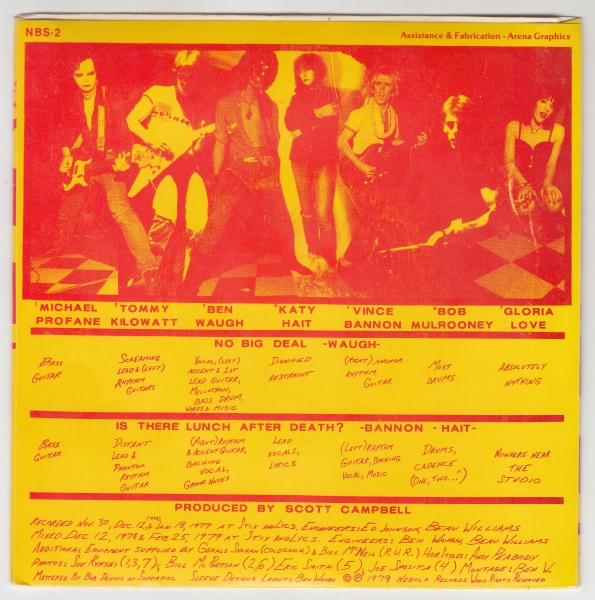 NBS-2
Assistance & Fabrication - Arena Graphics
'MICHAEL PROFANE
'TOMMY KILOWATT
'BEN WAUGH
"KATY HAIT
'VINCE BANNON
"BOB MULROONEY
'GLORIA LOVE
NO BIG DEAL -WAUGH-
BASS
GUITAR
SCREAMING
LEAD & (LEFT)
RHYTHM
GUITARS
VOCAL, (LEFT)
ACCENT & 1ST
LEAD GUITAR,
MELLOTRON,
BASS DRUM,
WORDS & MUSIC
DIGNIFIED
RESTRAINT
(RIGHT) ANCHOR
RHYTHM
GUITAR
MOST
DRUMS
ABSOLUTELY
NOTHING
IS THERE LUNCH AFTER DEATH? -BANNON - HAIT-
BASS
GUITAR
DISTANT
LEAD &
PHANTOM
RHYTHM
GUITAR
(RIGHT) RHYTHM
& ACCENT GUITAR,
BACKING
VOCAL,
GROOVE NOTES
LEAD
VOCALS,
LYRICS
(LEFT) RHYTHM
GUITAR, BACKING
VOCAL, MUSIC
DRUMS,
CADENCE
(ONE, TWO...")
NOWHERE NEAR
THE
STUDIO
PRODUCED BY SCOTT CAMPBELL
RECORDED NOV. 30, DEC. 12, (1978) & JAN 18, 1979 AT STIX AND LYCS, ENGINEERS: ED JOHNSON, BEAU WILLIAMS
MIXED DEC 12, 1978 & FEB 25, 1979 AT STIX AND LYCS. ENGINEERS: BEN WAUGH, BEAU WILLIAMS
ADDITIONAL EQUIPMENT SUPPLIED BY GERALD SHOHAN (COLDCOCK) & BILL McNEIL (R.U.R.) HAIR STYLES: ANDY PEABODY
PHOTOS: SUE RYNSKI (1,3,7); BILL McPHERSON (2,6) ERIC SMITH (5), JOE SPOSITA (4) MONTAGE: BEN W.
MASTERED BY BOB DENNIS AT SUPERDISC SLEEVE DESIGN & LAYOUT: BEN WAUGH © ℗ 1979 NEBULA RECORDS WORLD RIGHTS RESERVED